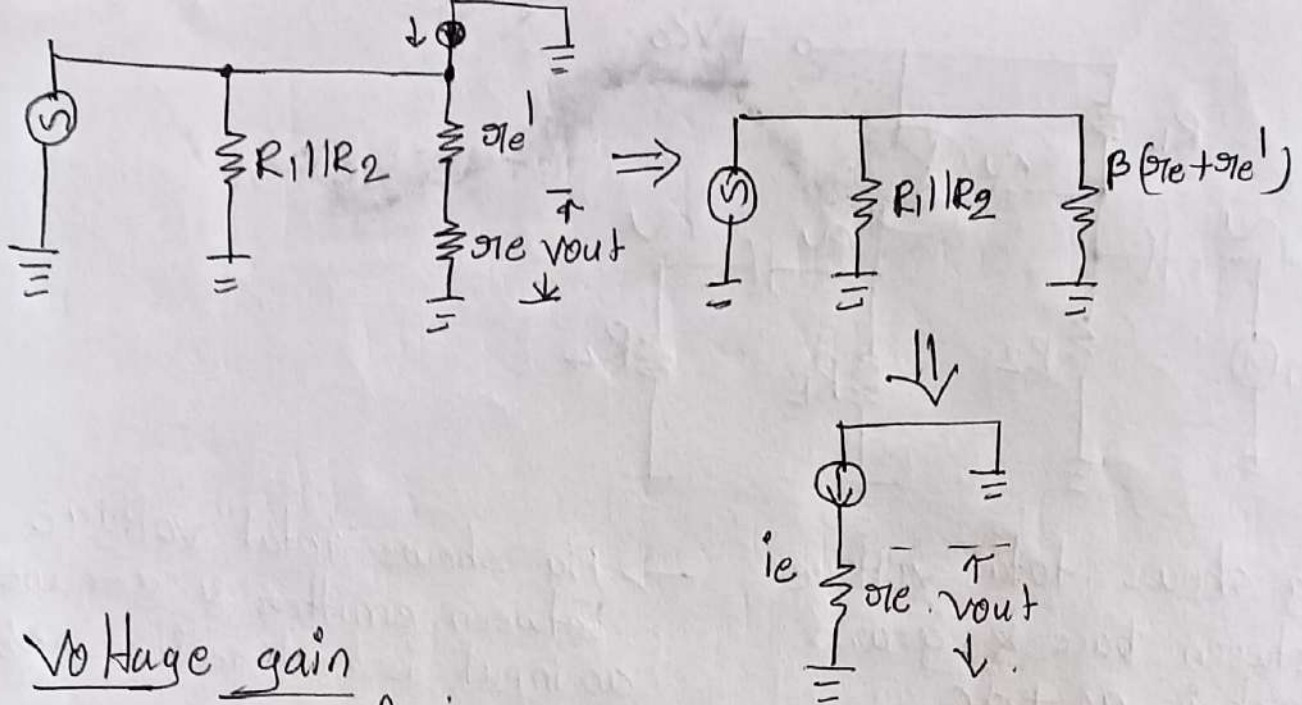 R1||R2
re'
re vout
⇒
S
R1||R2
β(re+re')
S
ie
re. vout
Voltage gain